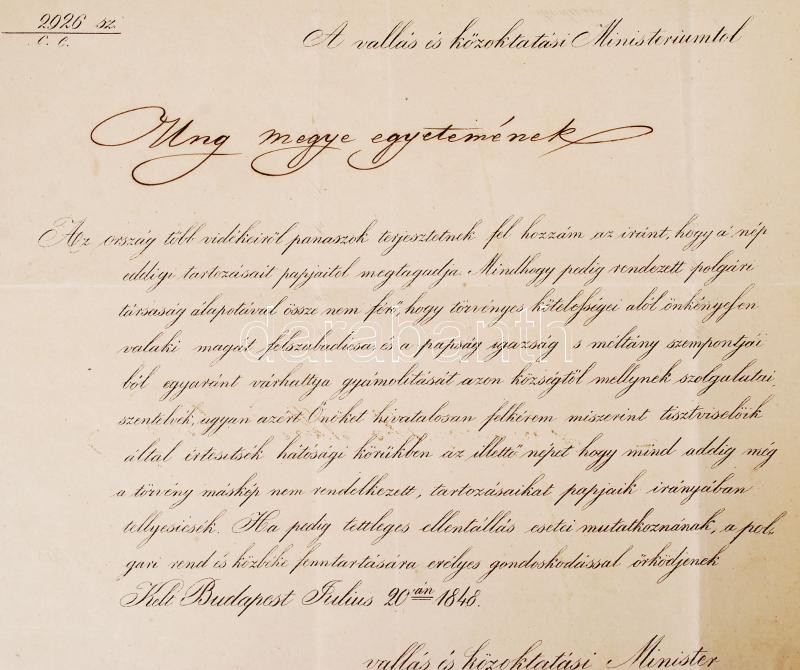 2926 sz.
C. C.
A vallás és közoktatási Ministeriumtol
Ung megye egyetemének
Az ország több vidékeiről panaszok terjesztetnek fel hozzám az iránt, hogy a' nép
eddigi tartozásait papjaitol megtagadja. Mindhogy pedig rendezett polgári
társaság álapotával össze nem férő, hogy törvényes kötelességei alól önkényesen
valaki magát felszabadicsa, és a papság igazság s méltány szempontjái
ból egyaránt várhattya gyámolitását azon községtől mellynek szolgulatai
szentelvék, ugyan azért Önöket hivatalosan felkérem miszerint tisztviselőik
által értesitsék hátósági körükben az illettő népet hogy mind addig még
a törvény máskép nem rendelkezett, tartozásaikat papjaik irányában
tellyesicsék. Ha pedig tettleges ellentállás esetei mutatkoznának, a pol-
gari rend és közbéke fenntartására erélyes gondoskodással őrködjenek
Kelt Budapest Julius 20 án 1848.
vallás és közoktatási Minister
darabanth